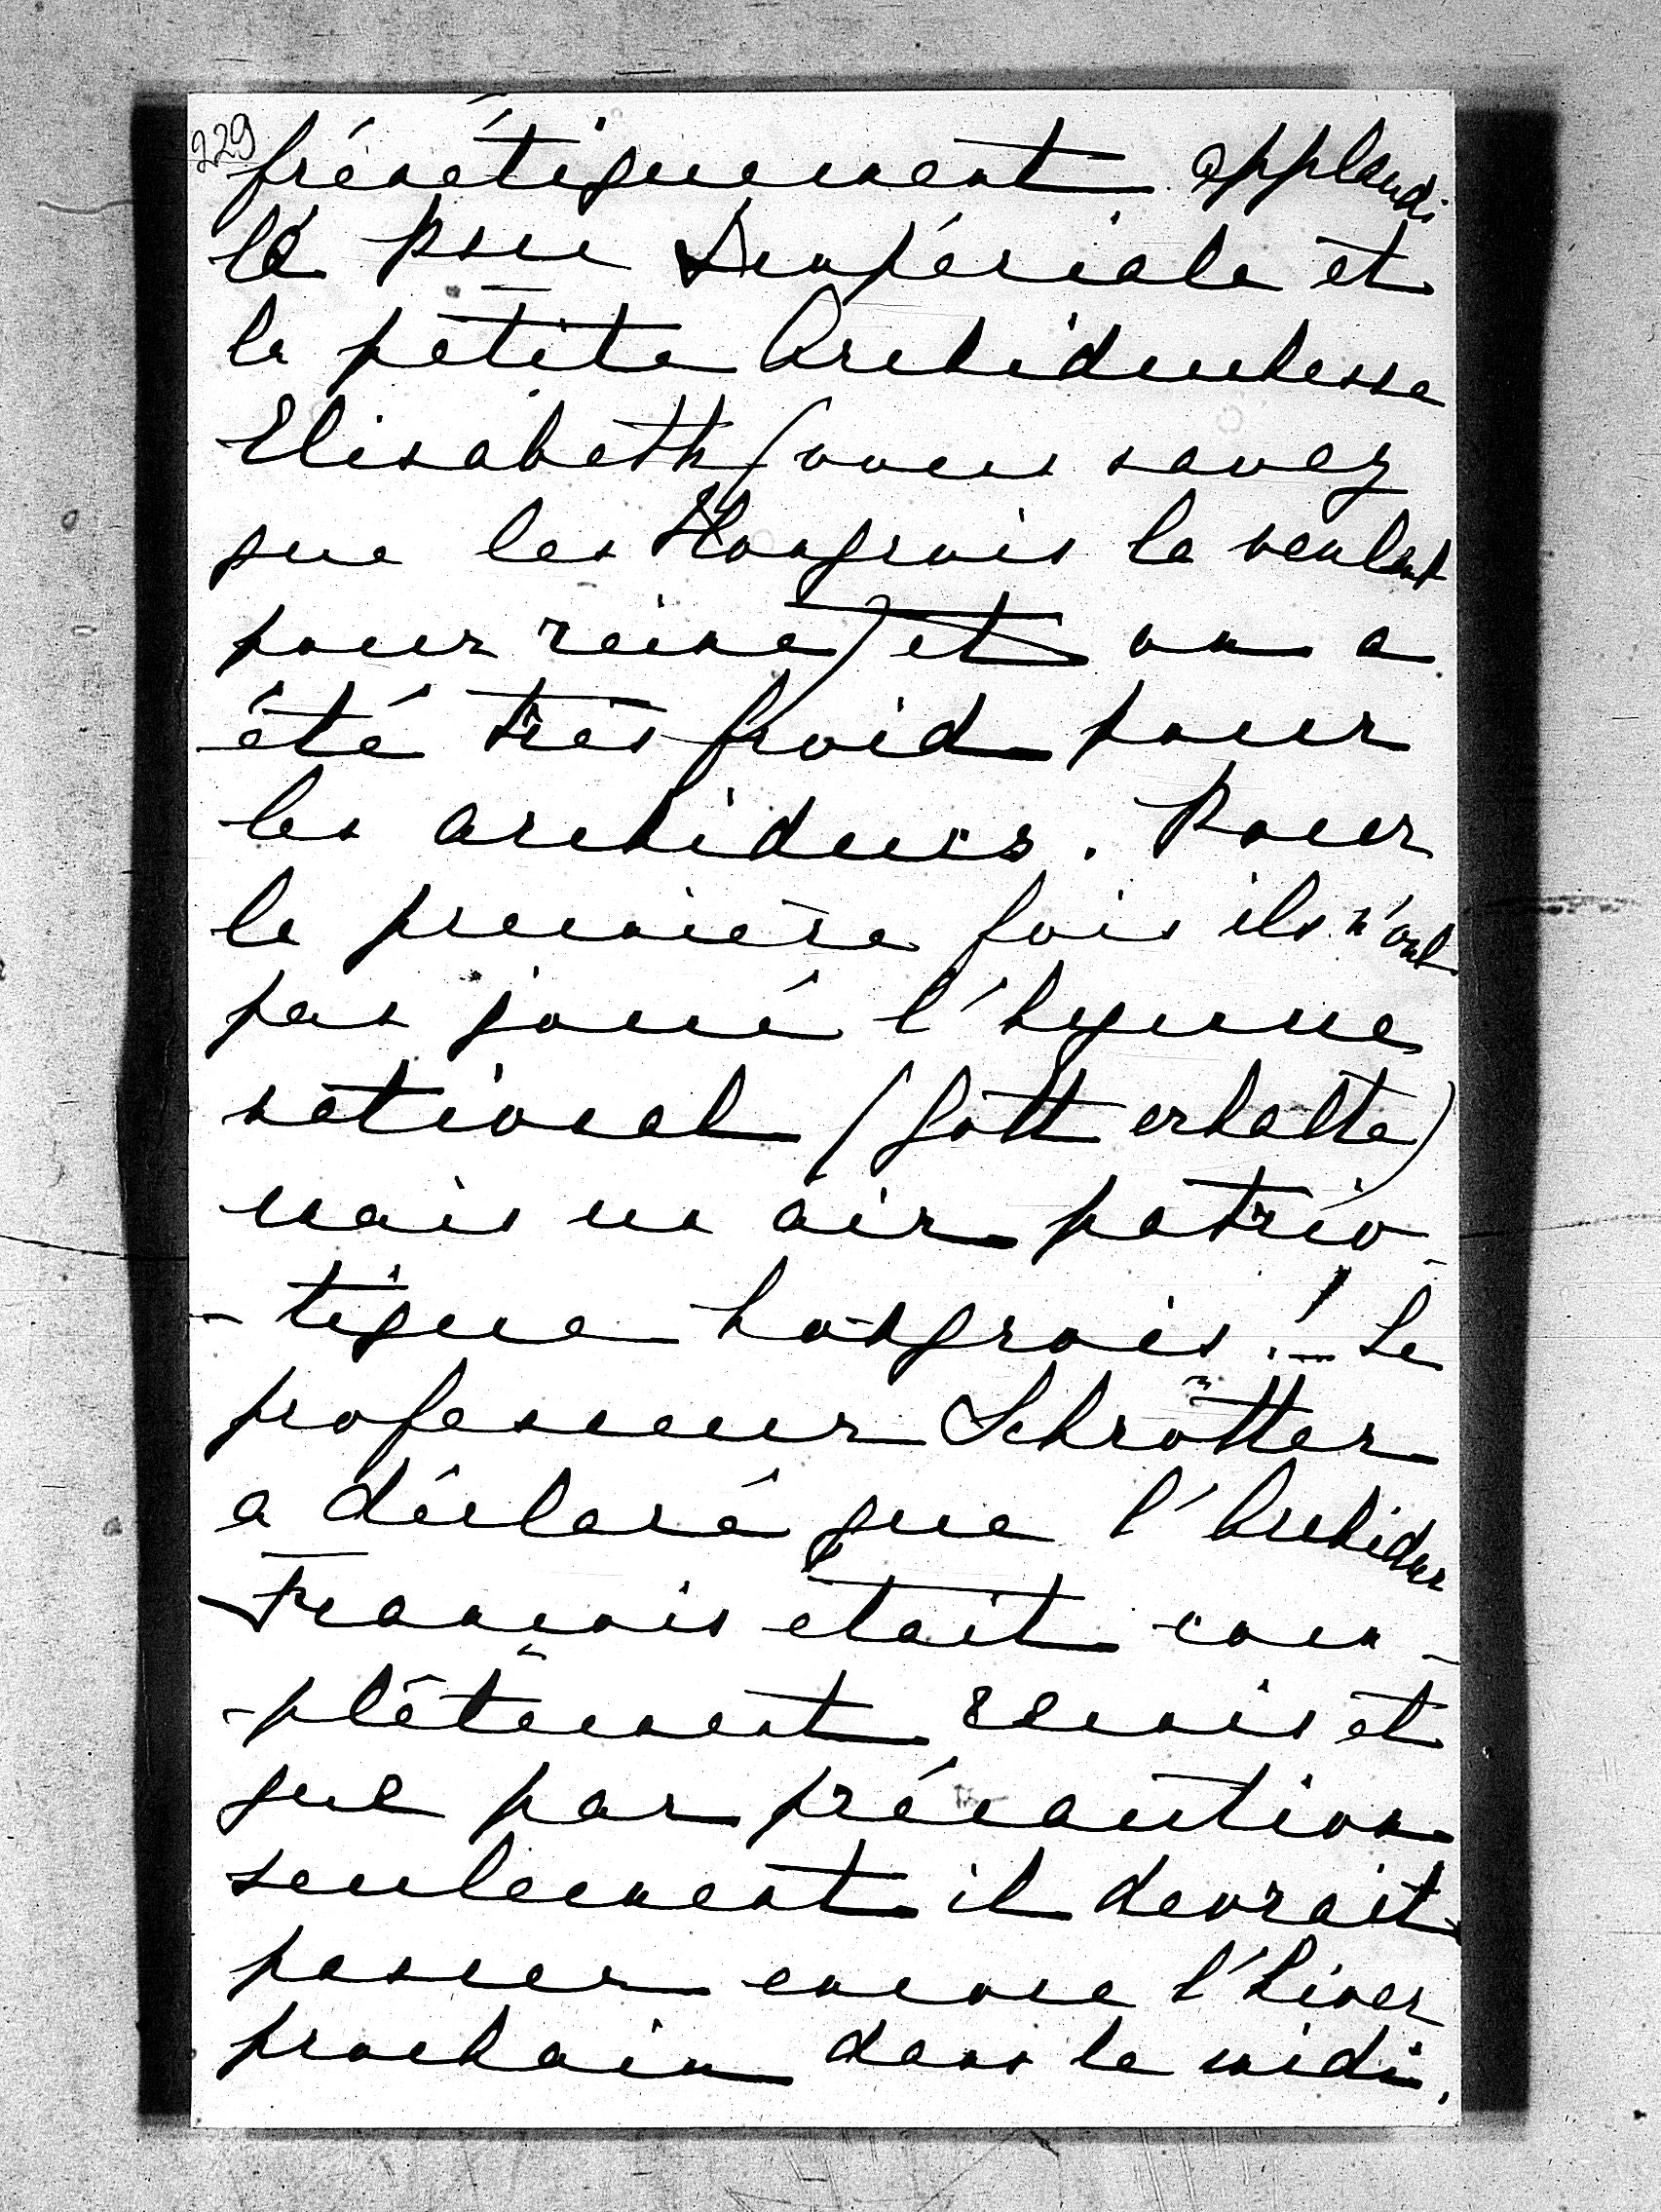 229
frénétiquement applaudi
le pce Impériale et
la petite Archiduchesse
Elisabeth (vous savez
que les Hongrois la veulent
pour reine) et on a
été très froid pour
les archiducs. Pour
la première fois ils n'ont
pas joué l'hymne
national (Gott erhalte)
mais un air patrio-
-tique hongrois! - Le
professeur Schrötter
a déclaré que l'Archiduc
François était com-
-plètement remis et
que par précaution
seulement il devrait
passer encore l'hiver
prochain dans le midi.